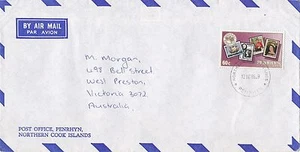 BY AIR MAIL
PAR AVION
M. Morgan,
498 Bell Street
West Preston,
Victoria 3072
Australia
60c
PENRHYN
POST OFFICE, PENRHYN,
NORTHERN COOK ISLANDS